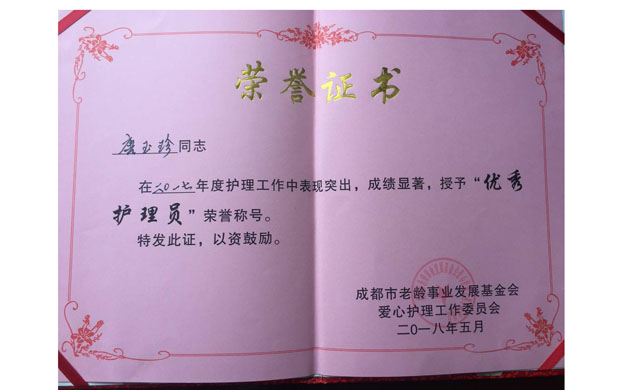 荣誉证书
唐玉珍同志
在二〇一七年度护理工作中表现突出，成绩显著，授予“优秀
护理员”荣誉称号。
特发此证，以资鼓励。
成都市老龄事业发展基金会
爱心护理工作委员会
二〇一八年五月